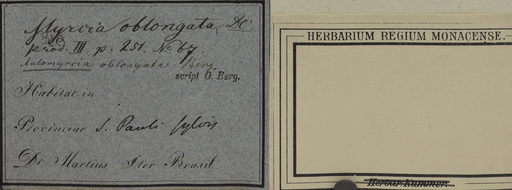 Myrcia oblongata DC.
prod. III p. 251. No 67.
Aulomyrcia oblongata Berg
script O. Berg.
Habitat in
Provinciae S. Pauli sylvis
Dr Martius Iter Brasil
HERBARIUM REGIUM MONACENSE.
Herbar. Kummer.